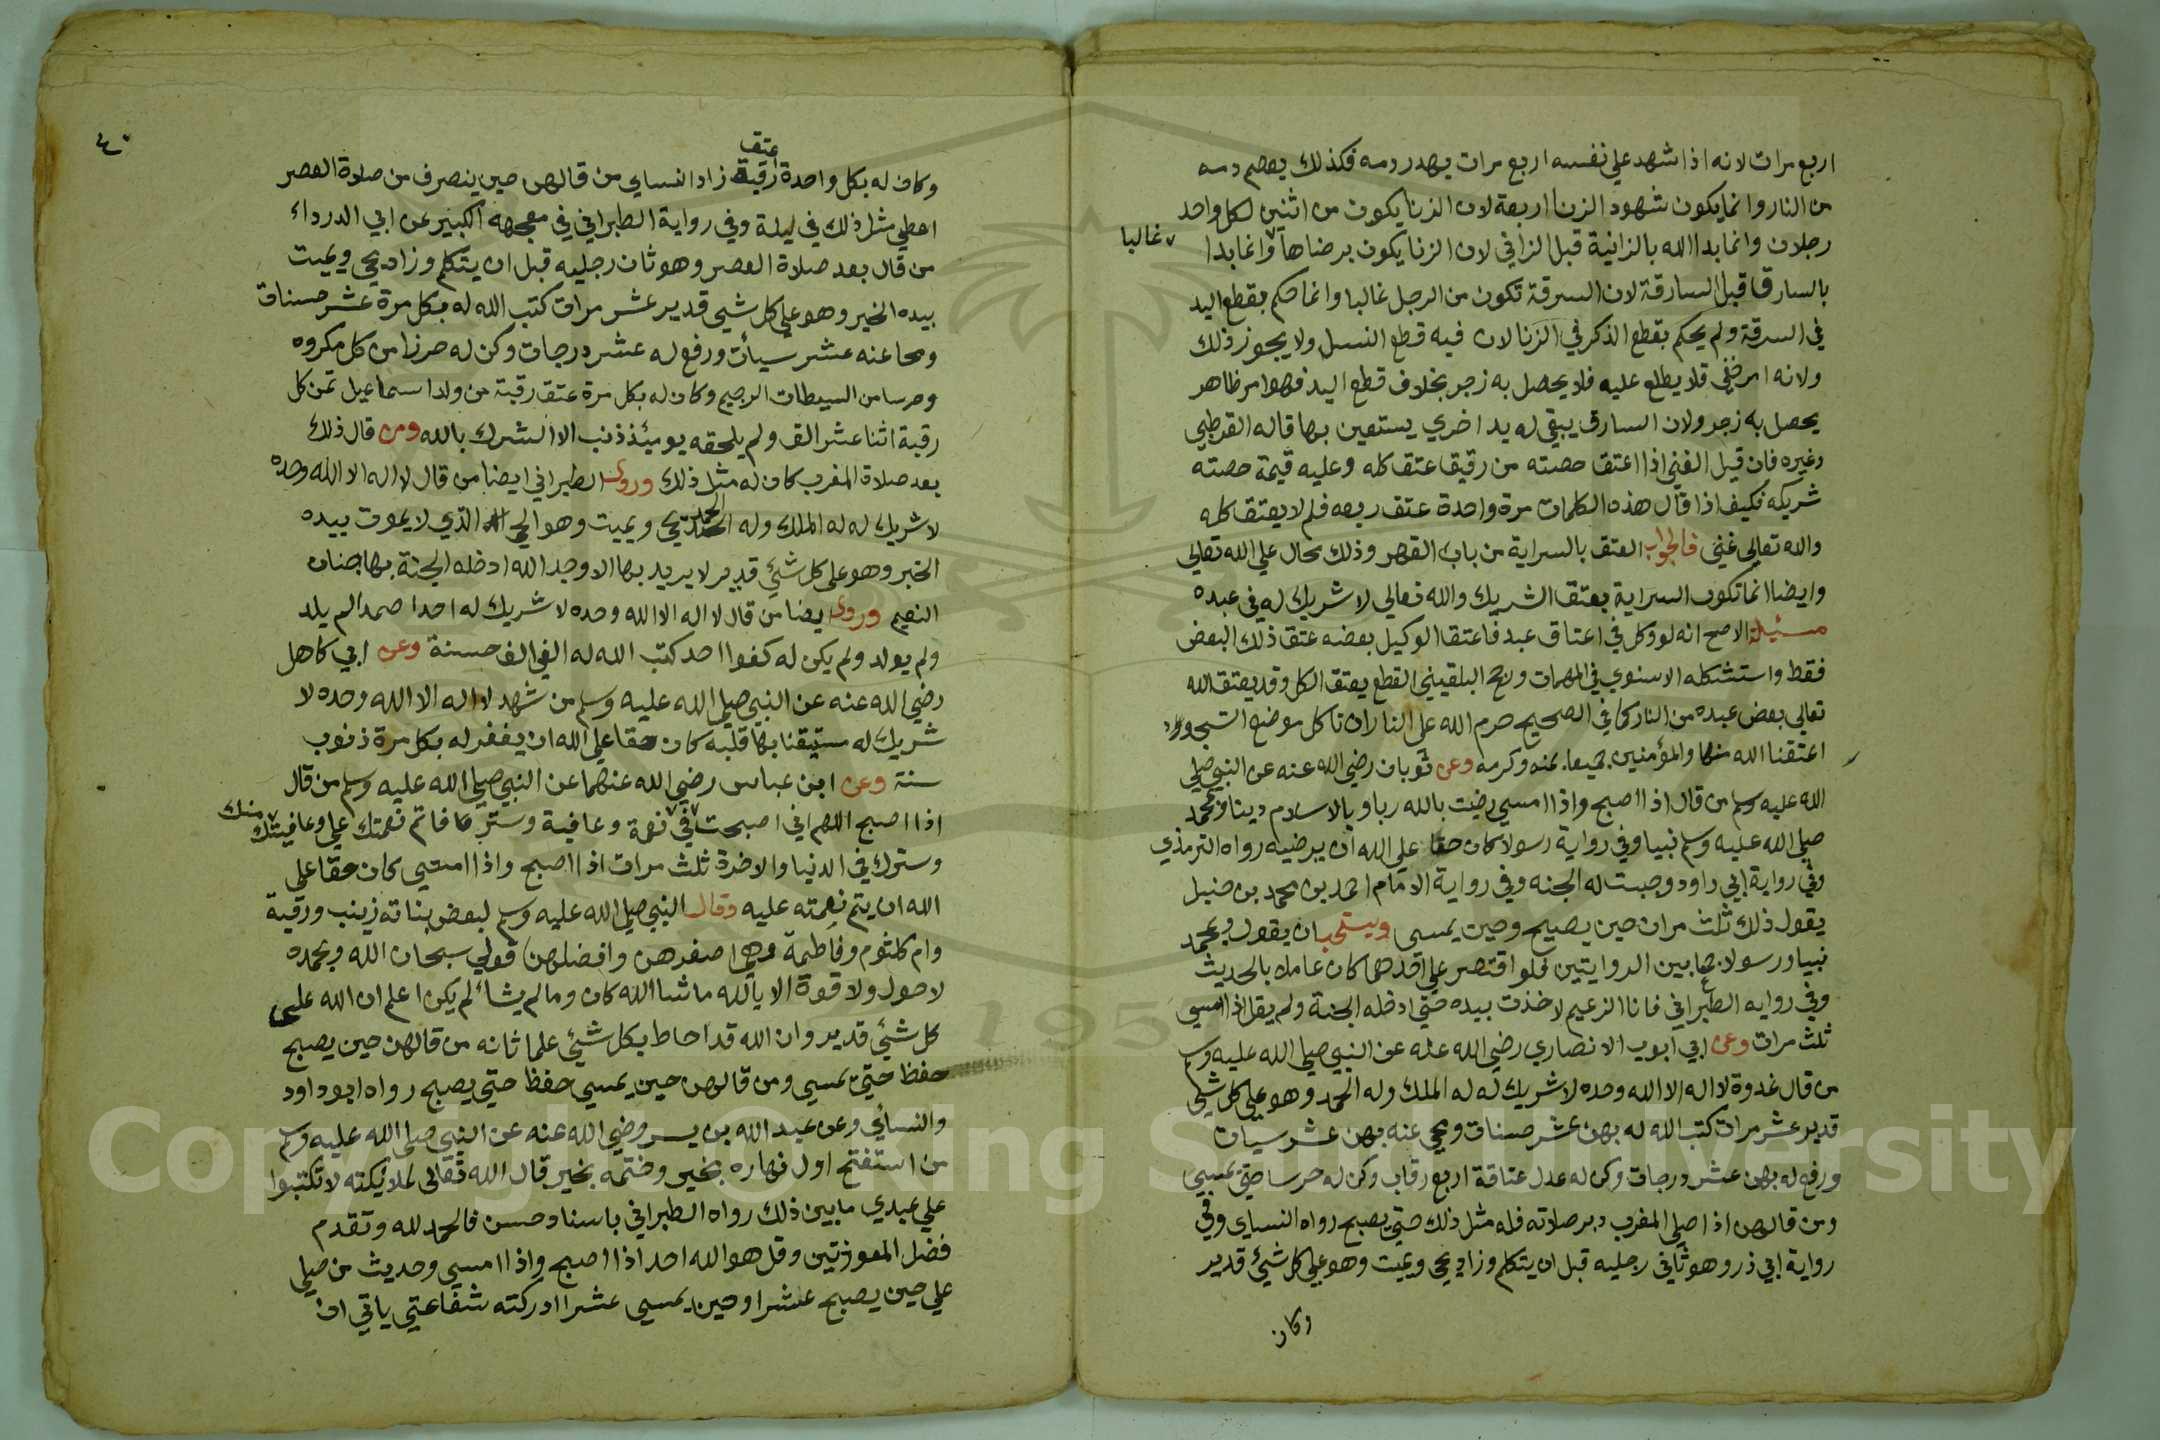 اربع مرات لانه اذا شهد علي نفسه اربع مرات يهدر دمه فكذلك يعصم دمه
من النار وانما يكون شهود الزنا اربعة لان الزنا يكون من اثنين لكل واحد
رجلان وانما بدا الله بالزانية قبل الزاني لان الزنا يكون برضاها وانما بدا
غالبا
بالسارق قبل السارقة لان السرقة تكون من الرجل غالبا وانما حكم بقطع اليد
في السرقة ولم يحكم بقطع الذكر في الزنا لان فيه قطع النسل ولا يجوز ذلك
ولانه امر خفي قلا يطلع عليه فلا يحصل به زجر بخلاف قطع اليد فهو امر ظاهر
يحصل به زجر ولان السارق يبقي له يد اخري يستعين بها قاله القرطبي
وغيره فان قيل الغني اذا اعتق حصته من رقيق عتق كله وعليه قيمة حصته
شريكه فكيف اذا قال هذه الكلمات مرة واحدة عتق ربعه فلم لا يعتق كله
والله تعالي غني فالجواب العتق بالسراية من باب القهر وذلك محال علي الله تعالي
وايضا انما تكون السراية بعتق الشريك والله تعالي لا شريك له في عبده
مسئيلة الاصح انه لو وكل في اعتاق عبد فاعتق الوكيل بعضه عتق ذلك البعض
فقط واستشكله الاسنوي في المهمات ورجح البلقيني القطع يعتق الكل وقد يعتق الله
تعالي بعض عبده من النار كما في الصحيح حرم الله علي النار ان تاكل موضع السجود
اعتقنا الله منها والمؤمنين جميعا بمنه وكرمه وعن ثوبان رضي الله عنه عن النبي صلي
الله عليه وسلم من قال اذا اصبح واذا امسي رضيت بالله ربا وبالاسلام دينا وبمحمد
صلي الله عليه وسلم نبيا وفي رواية رسولا كان حقا علي الله ان يرضيه رواه الترمذي
وفي رواية ابي داود وجبت له الجنه وفي رواية الامام احمد بن محمد بن حنبل
يقول ذلك ثلث مرات حين يصبح وحين يمسي ويستحب ان يقول وبمحمد
نبيا ورسولا جمعا بين الروايتين فلو اقتصر علي احدهما كان عاملا بالحديث
وفي روايه الطبراني فانا الزعيم لاخذت بيده حتي ادخله الجنة ولم يقل اذا امسي
ثلث مرات وعن ابي ايوب الانصاري رضي الله عنه عن النبي صلي الله عليه وسلم
من قال غدوة لا اله الا الله وحده لا شريك له له الملك وله الحمد وهو علي كل شيئ
قدير عشر مرات كتب الله له بهن عشر حسنات ومحي عنه بهن عشر سيات
ورفع له بهن عشر درجات وكن له عدل عتاقة اربع رقاب وكن له حرسا حتي يمسي
ومن قالهن اذا صلي المغرب دبر صلاته فله مثل ذلك حتي يصبح رواه النساي وفي
رواية ابي ذر وهو ثاني رجليه قبل ان يتكلم وزاد يحي ويميت وهو علي كل شيئ قدير
وكان
٤٠
وكان له بكل واحدة عتق رقبة زاد النساي من قالهن حين ينصرف من صلاة العصر
اعطي مثل ذلك في ليلة وفي رواية الطبراني في معجمه الكبير عن ابي الدرداء
من قال بعد صلاة العصر وهو ثان رجليه قبل ان يتكلم وزاد يحي ويميت
بيده الخير وهو علي كل شيئ قدير عشر مرات كتب الله له بكل مرة عشر حسنات
ومحا عنه عشر سيأت ورفع له عشر درجات وكن له حرزا من كل مكروه
وحرسا من الشيطان الرجيم وكان له بكل مرة عتق رقبة من ولد اسماعيل ثمن كل
رقبة اثنا عشر الف ولم يلحقه يومئذ ذنب الا الشرك بالله ومن قال ذلك
بعد صلاة المغرب كان له مثل ذلك وروي الطبراني ايضا من قال لا اله الا الله وحده
لا شريك له له الملك وله الحمد يحي ويميت وهو الحي الذي لا يموت بيده
الخير وهو علي كل شئي قدير لا يريد بها الا وجد الله ادخله الجنة بها جنات
النعيم وروي ايضا من قال لا اله الا الله وحده لا شريك له احدا صمدا لم يلد
ولم يولد ولم يكن له كفوا احد كتب الله له الفي الف حسنة وعن ابي كاهل
رضي الله عنه عن النبي صلي الله عليه وسلم من شهد لا اله الا الله وحده لا
شريك له مستيقنا بها قلبه كان حقا علي الله ان يغفر له بكل مرة ذنوب
سنة وعن ابن عباس رضي الله عنهما عن النبي صلي الله عليه وسلم من قال
اذا اصبح اللهم اني اصبحت في نعمة وعافية وستر فاتم نعمتك علي وعافيتك
منك
وسترك في الدنيا والاخرة ثلث مرات اذا اصبح واذا امسي كان حقا علي
الله ان يتم نعمته عليه وقال النبي صلي الله عليه وسلم لبعض بناته زينب ورقية
وام كلثوم وفاطمة وهي اصغرهن وافضلهن قولي سبحان الله وبحمده
لا حول ولا قوة الا بالله ما شا الله كان وما لم يشأ لم يكن اعلم ان الله علي
كل شيئ قدير وان الله قد احاط بكل شيئ علما فانه من قالهن حين يصبح
حفظ حتي يمسي ومن قالهن حين يمسي حفظ حتي يصبح رواه ابو داود
والنسائي وعن عبد الله بن يسر رضي الله عنه عن النبي صلي الله عليه وسلم
من استفتح اول نهاره بخير وختمه بخير قال الله تعالي لملائكته لا تكتبوا
علي عبدي ما بين ذلك رواه الطبراني باسناد حسن فالحمد لله وتقدم
فضل المعوزتين وقل هو الله احد اذا اصبح واذا امسي وحديث من صلي
علي حين يصبح عشرا وحين يمسي عشرا ادركته شفاعتي ياتي ان
Copyright © King Saud University
1957